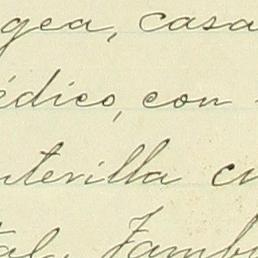 gea, casa
édico, con
nterilla cu
tal. Jamb